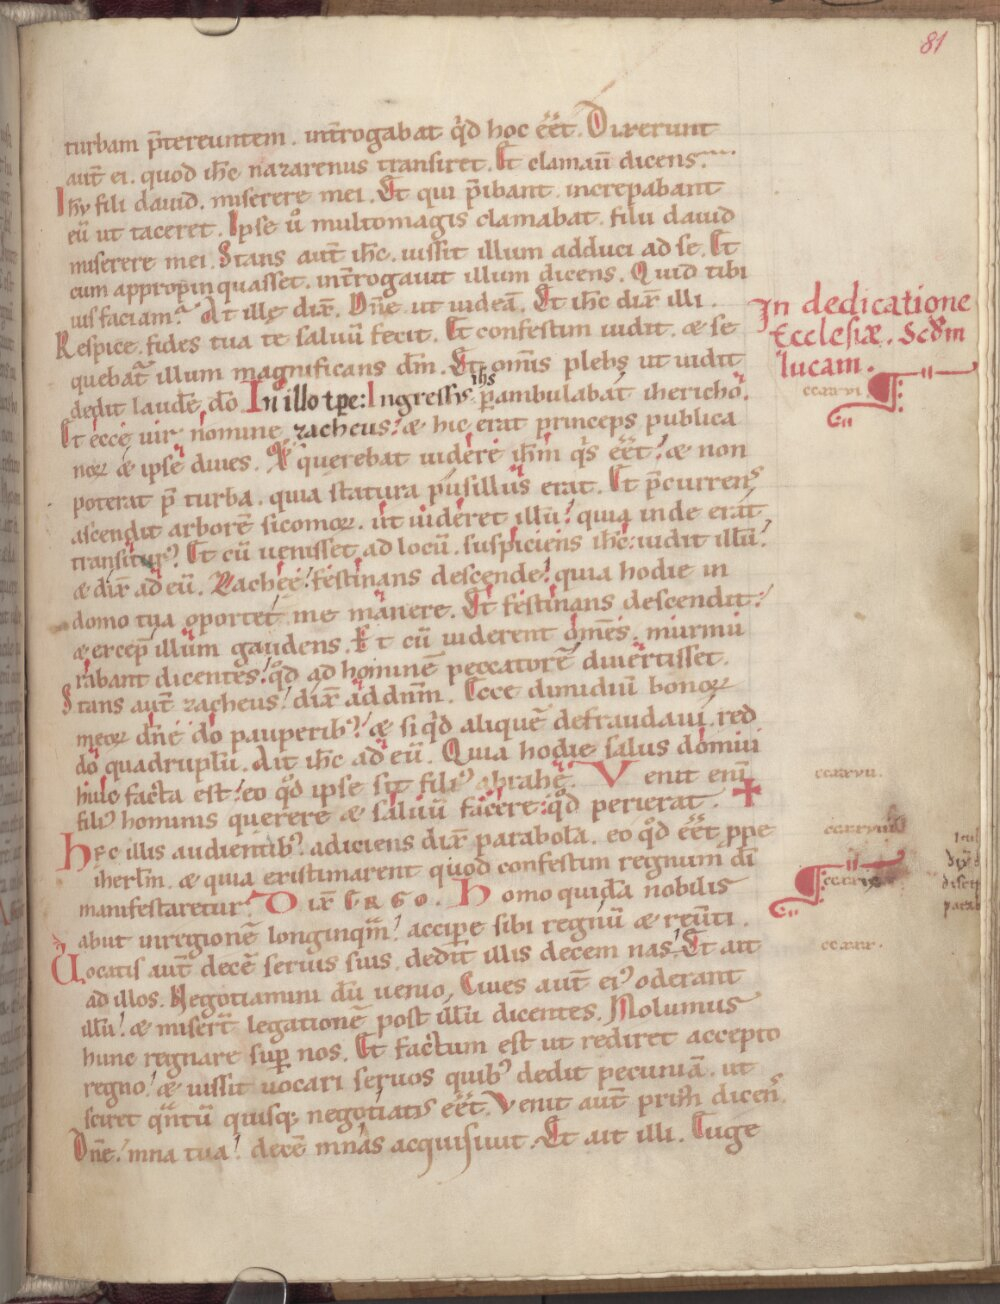 81
turbam p̄tereuntem. int̄rogabat q̇d hoc ēēt. Dixerunt
aut̄ ei. quod ih̄c nazarenus transiret. Et clamaū dicens.
Ih̄u fili dauid. miserere mei. Et qui p̄ibant. increpabant
eū ut taceret. Ipse u͛o multomagis clamabat. fili dauid
miserere mei. Stans aut̄ ih̄c. iussit illum adduci ad se. Et
cum appropinquasset. int̄rogauit illum dicens. Quid tibi
uis faciam? At ille dix̄. Dn̄e ut uideā. Et ih̄c dix̄ illi.
Respice. fides tua te saluū fecit. Et confestim uidit. & se
quebat̄ illum magnificans dm̄. Et om̄is plebs ut uidit
dedit laudē do͞. In illo tp̄e: Ingressus ihs p̄ambulabat iherichō.
Et ecce uir nomine zacheus. & hic erat princeps publica
noꝝ & ipse diues. Et querebat uidere ih̄m q̇s ēēt. & non
poterat p̄ turba. quia statura pusillus erat. Et p̄currens
ascendit arborē sicomoꝝ. ut uideret illū. quia inde erat
transiturꝰ. Et cū uenisset ad locū. suspiciens ih̄c. uidit illū.
& dix̄ ad eū. Zachee festinans descende. quia hodie in
domo tua oportet me manere. Et festinans descendit.
& excep̄ illum gaudens. Et cū uiderent om̄es. murmu
rabant dicentes. qd̄ ad hominē peccatorē diuertisset.
Stans aut̄ zacheus. dix̄ ad dn̄m. Ecce dimidiū bonoꝝ
meoꝝ dn̄e do pauperibꝰ. & si q̇d aliquē defraudaui. red
do quadruplū. Ait ih̄c ad eū. Quia hodie salus domui
huic facta est. eo qd̄ ipse sit filiꝰ abrahę. Venit eni̅
filiꝰ hominis querere & saluū facere qd̄ perierat.
Hęc illis audientibꝰ. adiciens dix̄ parabolā. eo qd̄ ēēt ꝓpe
iherl̄m. & quia existimarent quod confestim regnum dī
manifestaretur. Dix̄ ERGO. Homo quidā nobilis
abiit in regionē longinqm̄. accipere sibi regnū & reūti.
Uocatis aut̄ decē seruis suis. dedit illis decem nas. Et ait
ad illos. Negotiamini dū uenio. Ciues aut̄ eiꝰ oderant
illū. & miser̄t legationē post illū dicentes. Nolumus
hunc regnare suꝑ nos. Et factum est ut rediret accepto
regno. & iussit uocari seruos quibꝰ dedit pecuniā. ut
sciret qn̄tū quisqꝫ negotiatꝰ ēēt. Venit aut̄ primꝰ dicens.
Dn̄e. mna tua. decē mnas acquisiuit. Et ait illi. Euge
In dedicatione
Ecclesiæ. Scdm
lucam.
ccxxvi.
ccxxvii.
ccxxviii
ccxxix
ccxxx.